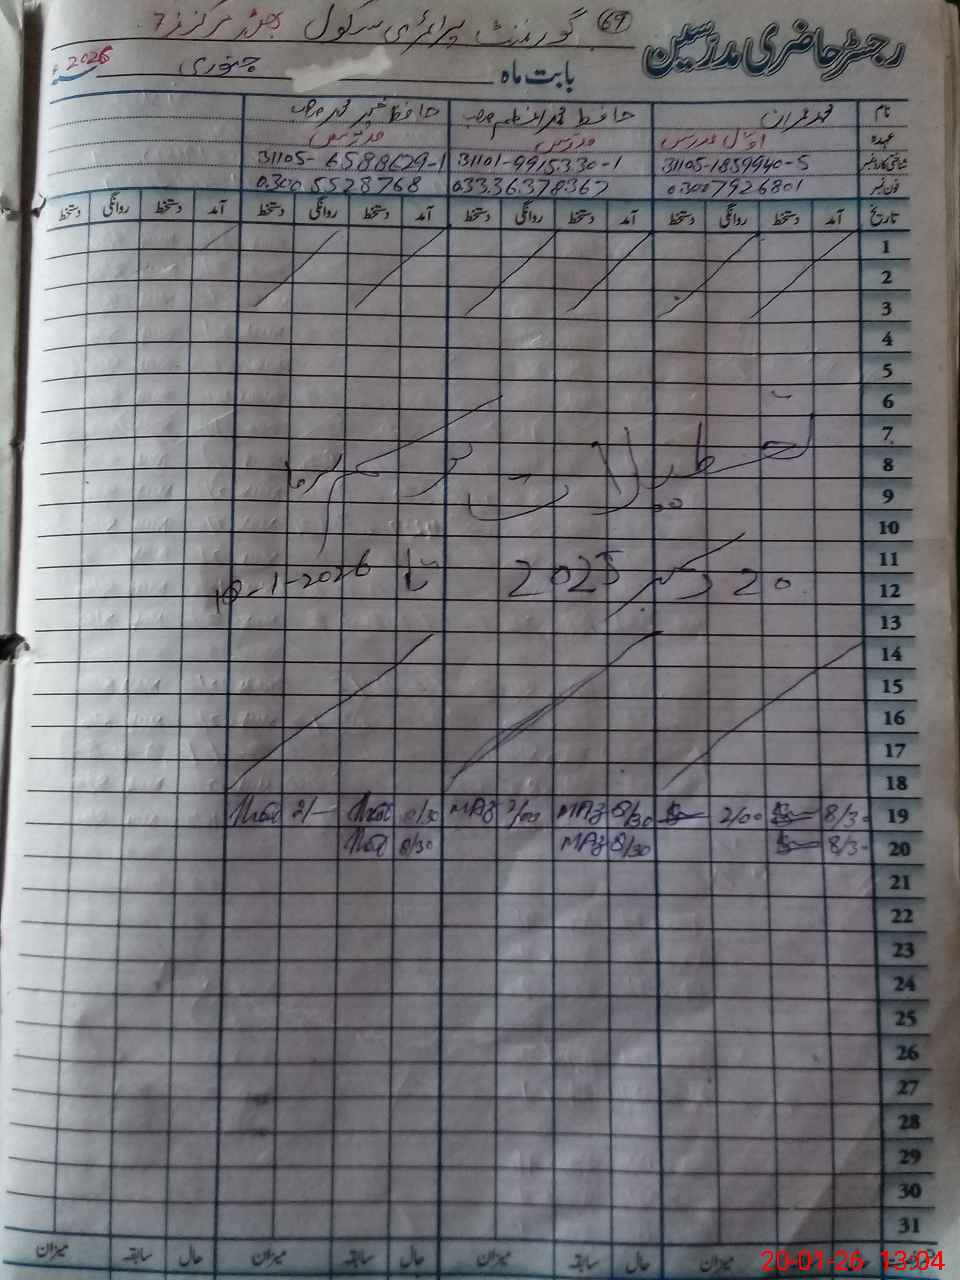 رجسٹر حاضری مدرسین
69 گورنمنٹ پرائمری سکول مرکز 7
بابت ماہ جنوری 2026ء
نام محمد عمران حافظ محمد حافظ محمد
عہدہ اول مدرس مدرس مدرس
شناختی کارڈ نمبر 31105-1859940-5 31101-9915330-1 31105-6588629-1
فون نمبر 03007926801 03336378367 03005528768
تاریخ آمد دستخط روانگی دستخط آمد دستخط روانگی دستخط آمد دستخط روانگی دستخط آمد دستخط روانگی دستخط
1
2
3
4
5
6
7
8
تعطیلات موسم سرما
9
10
11
12
20 دسمبر 2025 تا 18-1-2026
13
14
15
16
17
18
19 8/30 2/00 MAZ 8/30 MAZ 2/00 8/30 2/-
20 8/30 MAZ 8/30 8/30
21
22
23
24
25
26
27
28
29
30
31
میزان حال سابقہ میزان حال سابقہ میزان
20-01-26 13:04